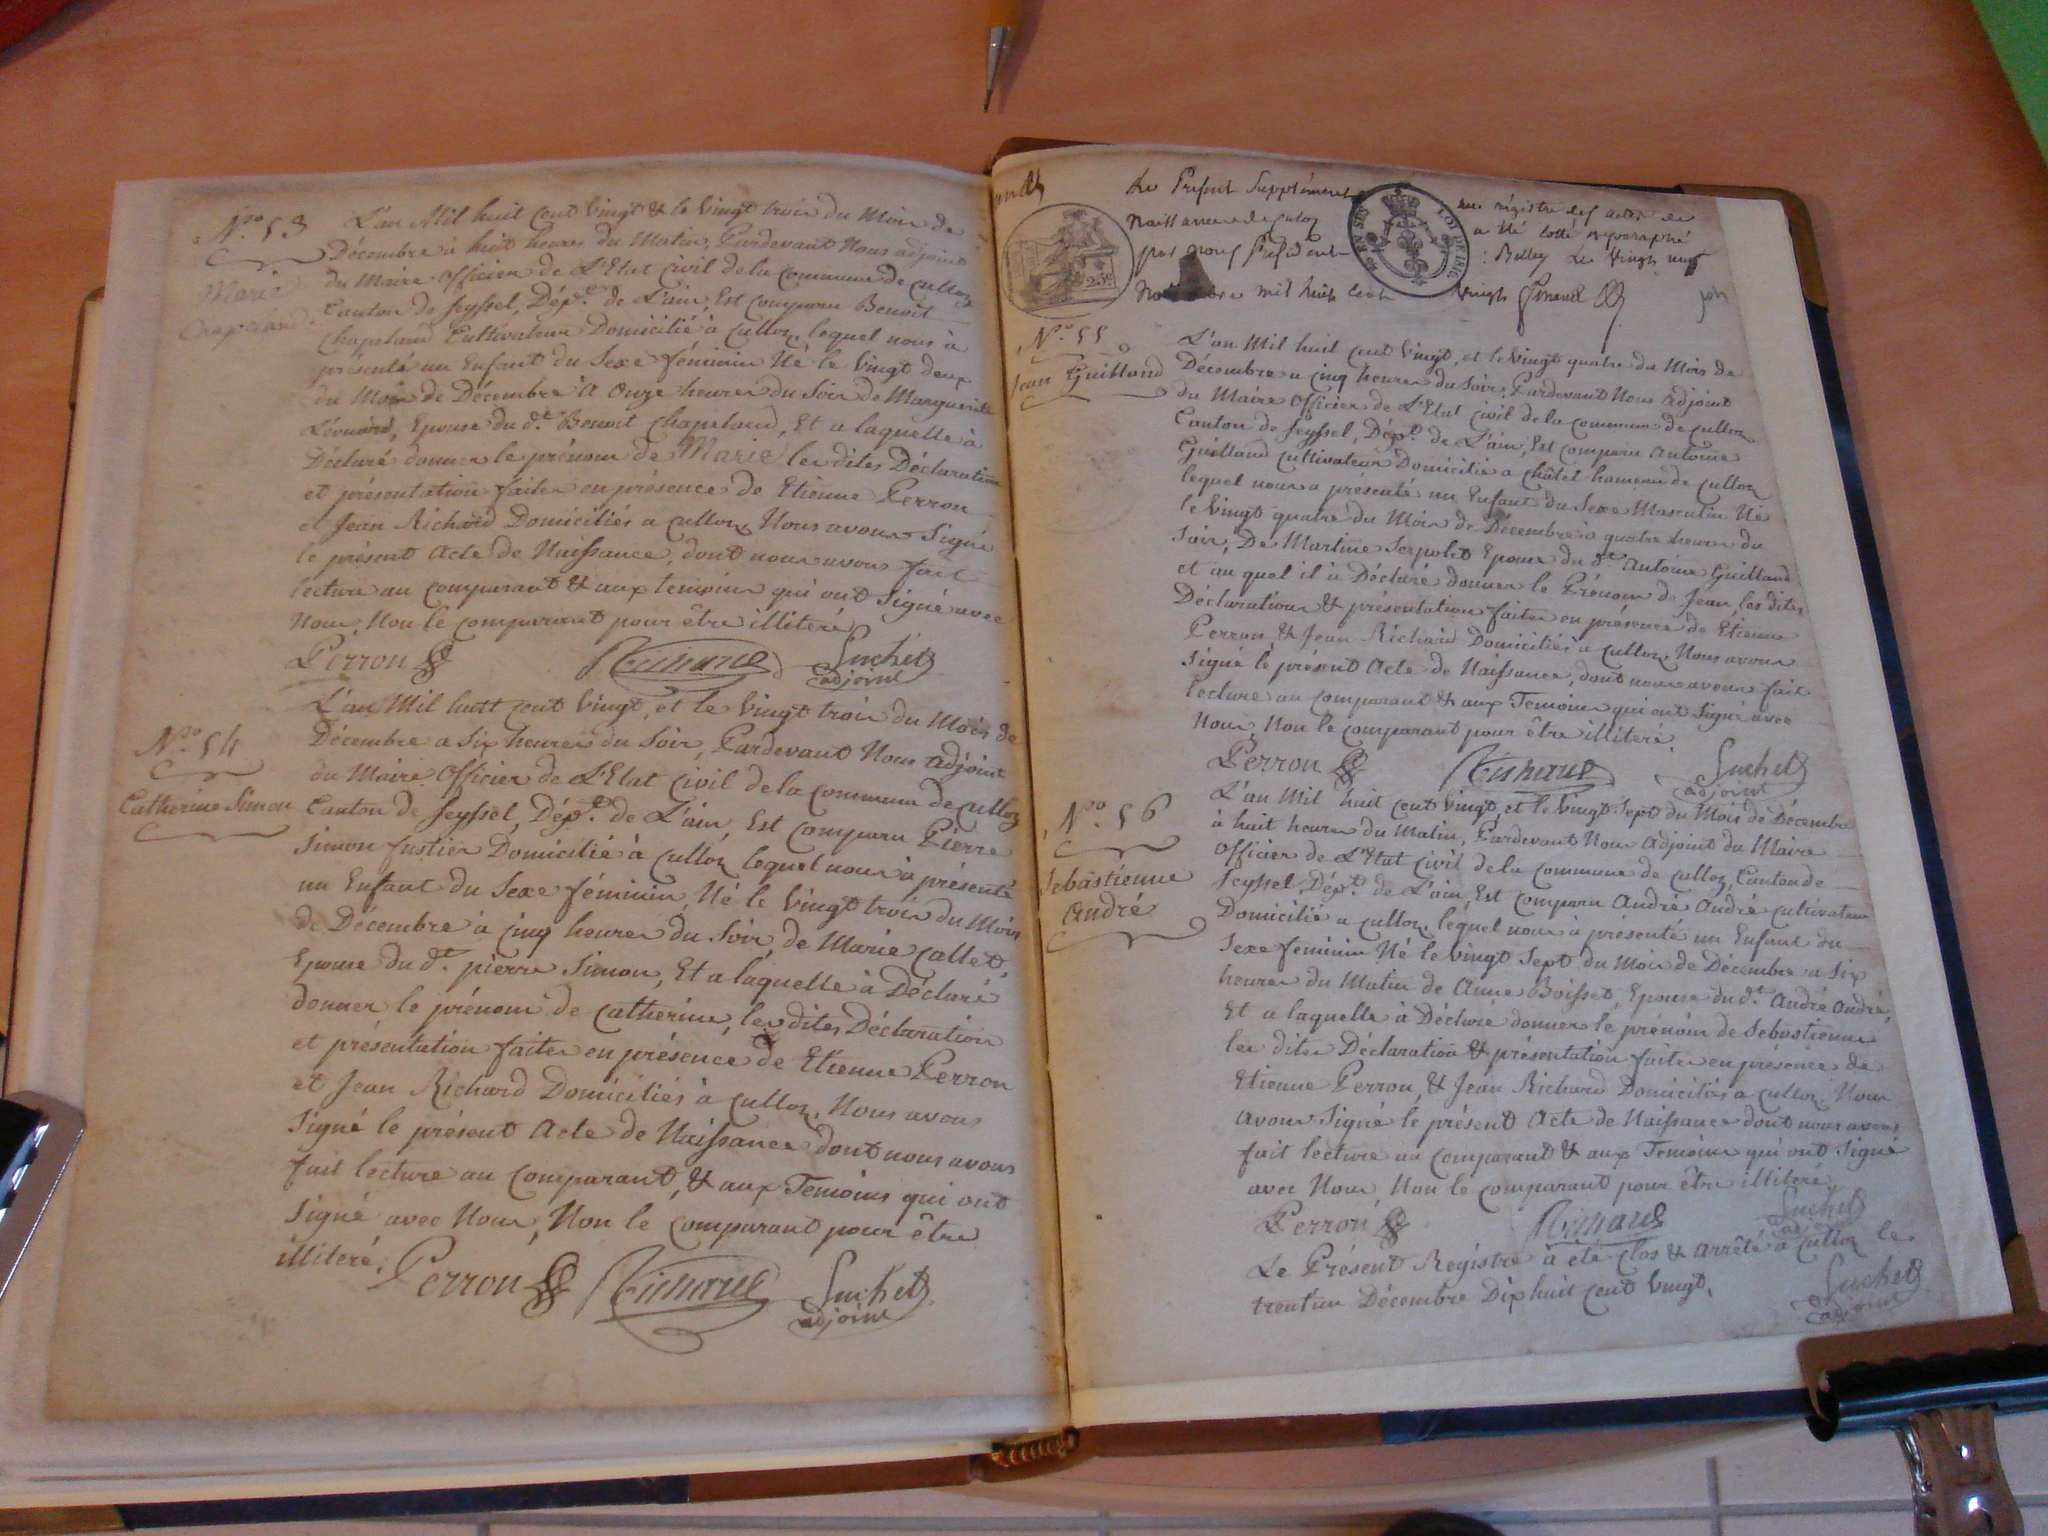 N.° 53
Marie
Chapeland
L'an Mil huit cent vingt & le vingt trois du Mois de
Décembre à huit heures du Matin, Pardevant Nous adjoint
du Maire Officier de L'Etat Civil de la Commune de Culloz
Canton de Seyssel, Dép.t de L'ain, Est comparu Benoit
Chapeland Cultivateur Domicilié à Culloz, lequel nous à
présenté un Enfant du Sexe féminin Né le vingt deux
du Mois de Décembre à Onze heures du Soir de Marguerite
Epouse du d.t Benoit Chapeland, Et a laquelle à
Déclaré donner le prénom de Marie les dites Déclaration
et présentation faites en présence de Etienne Perron
et Jean Richard Domiciliés a Culloz, Nous avons Signé
le présent Acte de Naissance, dont nous avons fait
lecture au comparant & aux temoins qui ont Signé avec
Nous, Non le comparant pour être illiteré
Perron Richard Suchet
adjoint
N.° 54
Catherine Simon
L'an Mil huit cent vingt, et le vingt trois du Mois de
Décembre a Six heures du Soir, Pardevant Nous Adjoint
du Maire Officier de L'Etat Civil de la commune de Culloz
Canton de Seyssel, Dép.t de L'ain, Est comparu Pierre
Simon fustier Domicilié à Culloz lequel nous à présenté
un Enfant du Sexe féminin, Né le vingt trois du Mois
de Décembre à cinq heures du Soir, de Marie Callet,
Epouse du d.t pierre Simon, Et a laquelle à Déclaré
donner le prénom de Catherine, les dites Déclaration
et présentation faites en présence de Etienne Perron
et Jean Richard Domiciliés à Culloz. Nous avons
Signé le présent Acte de Naissance dont nous avons
fait lecture au comparant, & aux Temoins qui ont
Signé avec Nous, Non le comparant pour être
illiteré.
Perron Richard Suchet
adjoint
Le Présent Supplément au régistre des actes de
Naissance de Culoz a été cotté et paraphé
par nous Président Belley Le Vingt neuf
Novembre mil huit cent vingt
25c
N.° 55
Jean Guilland
L'an Mil huit cent vingt, et le vingt quatre du Mois de
Décembre a cinq heures du Soir, Pardevant Nous Adjoint
du Maire Officier de L'Etat Civil de la Commune de Culloz
Canton de Seyssel, Dép.t de L'ain, Est comparu Antoine
Guilland cultivateur Domicilié a Châtel hameau de Culloz
lequel nous a présenté un Enfant du Sexe Masculin Né
le Vingt quatre du Mois de Décembre à quatre heures du
Soir, De Martine Serpolet Epouse du d.t Antoine Guilland
et au quel il à Déclaré donner le Prénom de Jean, les dites
Déclaration & présentation faites en présence de Etienne
Perron, & Jean Richard Domiciliés à Culloz. Nous avons
Signé le présent Acte de Naissance, dont nous avons fait
lecture au comparant & aux Temoins qui ont Signé avec
Nous, Non le comparant pour être illiteré.
Perron Richard Suchet
adjoint
N.° 56
Sebastienne
André
L'an Mil huit cent vingt, et le vingt Sept du Mois de Décembre
à huit heures du Matin, Pardevant Nous Adjoint du Maire
Officier de L'Etat Civil de la Commune de Culloz, Canton de
Seyssel, Dép.t de L'ain, Est comparu André André cultivateur
Domicilié a Culloz, lequel nous à présenté un Enfant du
Sexe féminin Né le vingt Sept du Mois de Décembre a Six
heures du Matin de Anne Boisset, Epouse du d.t André André,
Et a laquelle à Déclaré donner le prénom de Sebastienne
les dites Déclaration & présentation faites en présence de
Etienne Perron, & Jean Richard Domiciliés a Culloz. Nous
avons Signé le présent Acte de Naissance dont nous avons
fait lecture au comparant & aux Temoins qui ont Signé
avec Nous, Non le comparant pour être illiteré.
Perron Richard Suchet
adjoint
Le Présent Régistre à été Clos & arrêté à Culloz le
trent'un Décembre Dix huit cent vingt.
Suchet
adjoint